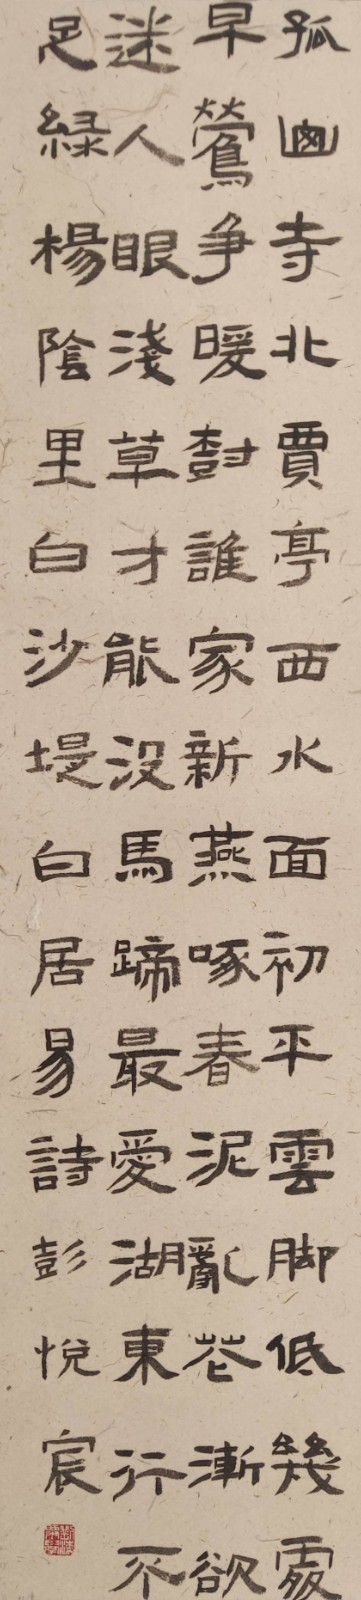 孤山寺北賈亭西水面初平雲脚低幾處
早鶯争暖樹誰家新燕啄春泥亂花漸欲
迷人眼淺草才能没馬蹄最愛湖東行不
足緑楊陰里白沙堤白居易詩彭悦宸